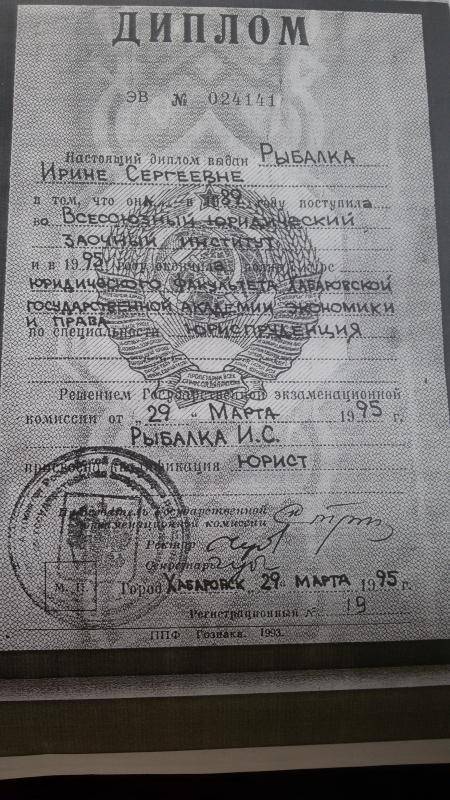 ДИПЛОМ
ЭВ № 024141
Настоящий диплом выдан РЫБАЛКА
ИРИНЕ СЕРГЕЕВНЕ
в том, что она в 1989 году поступила
во ВСЕСОЮЗНЫЙ ЮРИДИЧЕСКИЙ
ЗАОЧНЫЙ ИНСТИТУТ
и в 1995 году окончила полный курс
ЮРИДИЧЕСКОГО ФАКУЛЬТЕТА ХАБАРОВСКОЙ
ГОСУДАРСТВЕННОЙ АКАДЕМИИ ЭКОНОМИКИ
И ПРАВА
по специальности ЮРИСПРУДЕНЦИЯ
ПРОЛЕТАРИИ ВСЕХ
СТРАН, СОЕДИНЯЙТЕСЬ!
Решением Государственной экзаменационной
комиссии от „29" МАРТА 1995 г.
РЫБАЛКА И.С.
присвоена квалификация ЮРИСТ
Председатель Государственной
экзаменационной комиссии
Ректор
Секретарь
М. П. Город ХАБАРОВСК „29" МАРТА 1995 г.
Регистрационный № 19
ППФ Гознака. 1993.